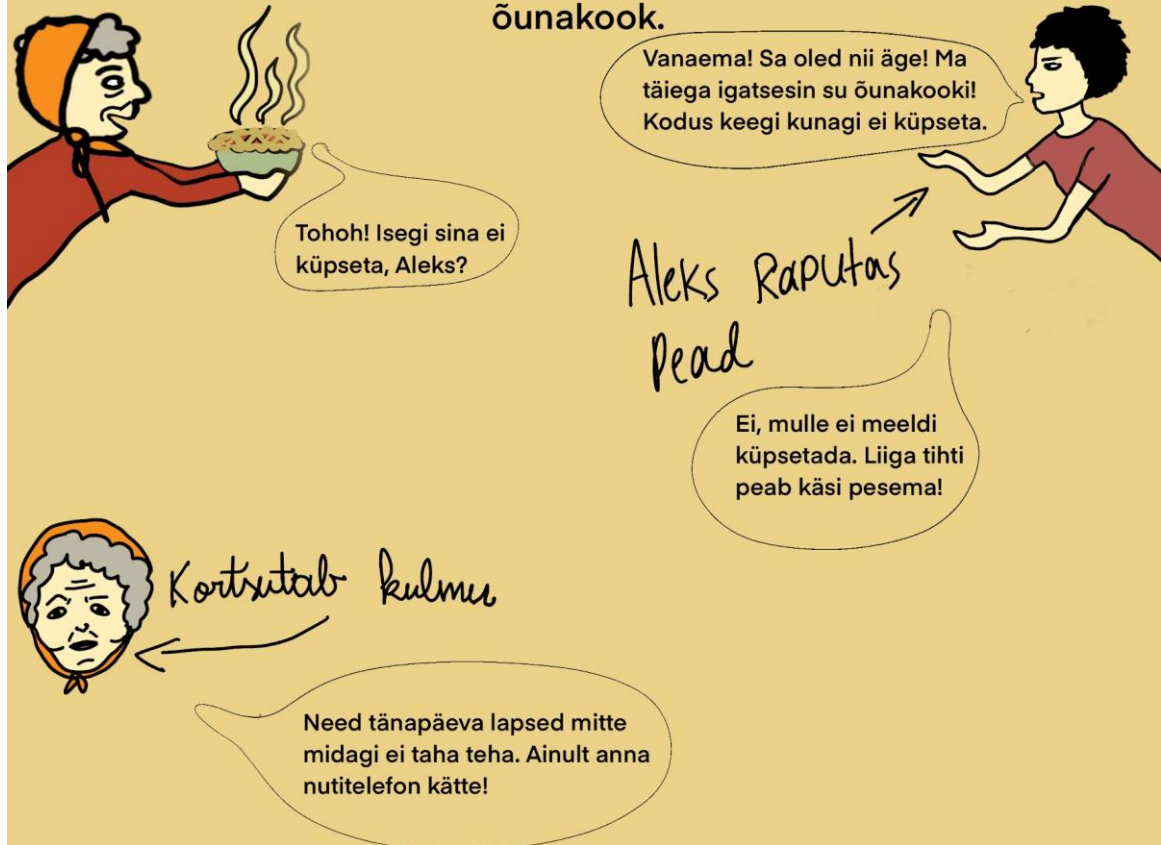 õunakook.
Vanaema! Sa oled nii äge! Ma
täiega igatsesin su õunakooki!
Kodus keegi kunagi ei küpseta.
Tohoh! Isegi sina ei
küpseta, Aleks?
Aleks Raputas
Pead
Ei, mulle ei meeldi
küpsetada. Liiga tihti
peab käsi pesema!
Kortsutab kulmu
Need tänapäeva lapsed mitte
midagi ei taha teha. Ainult anna
nutitelefon kätte!